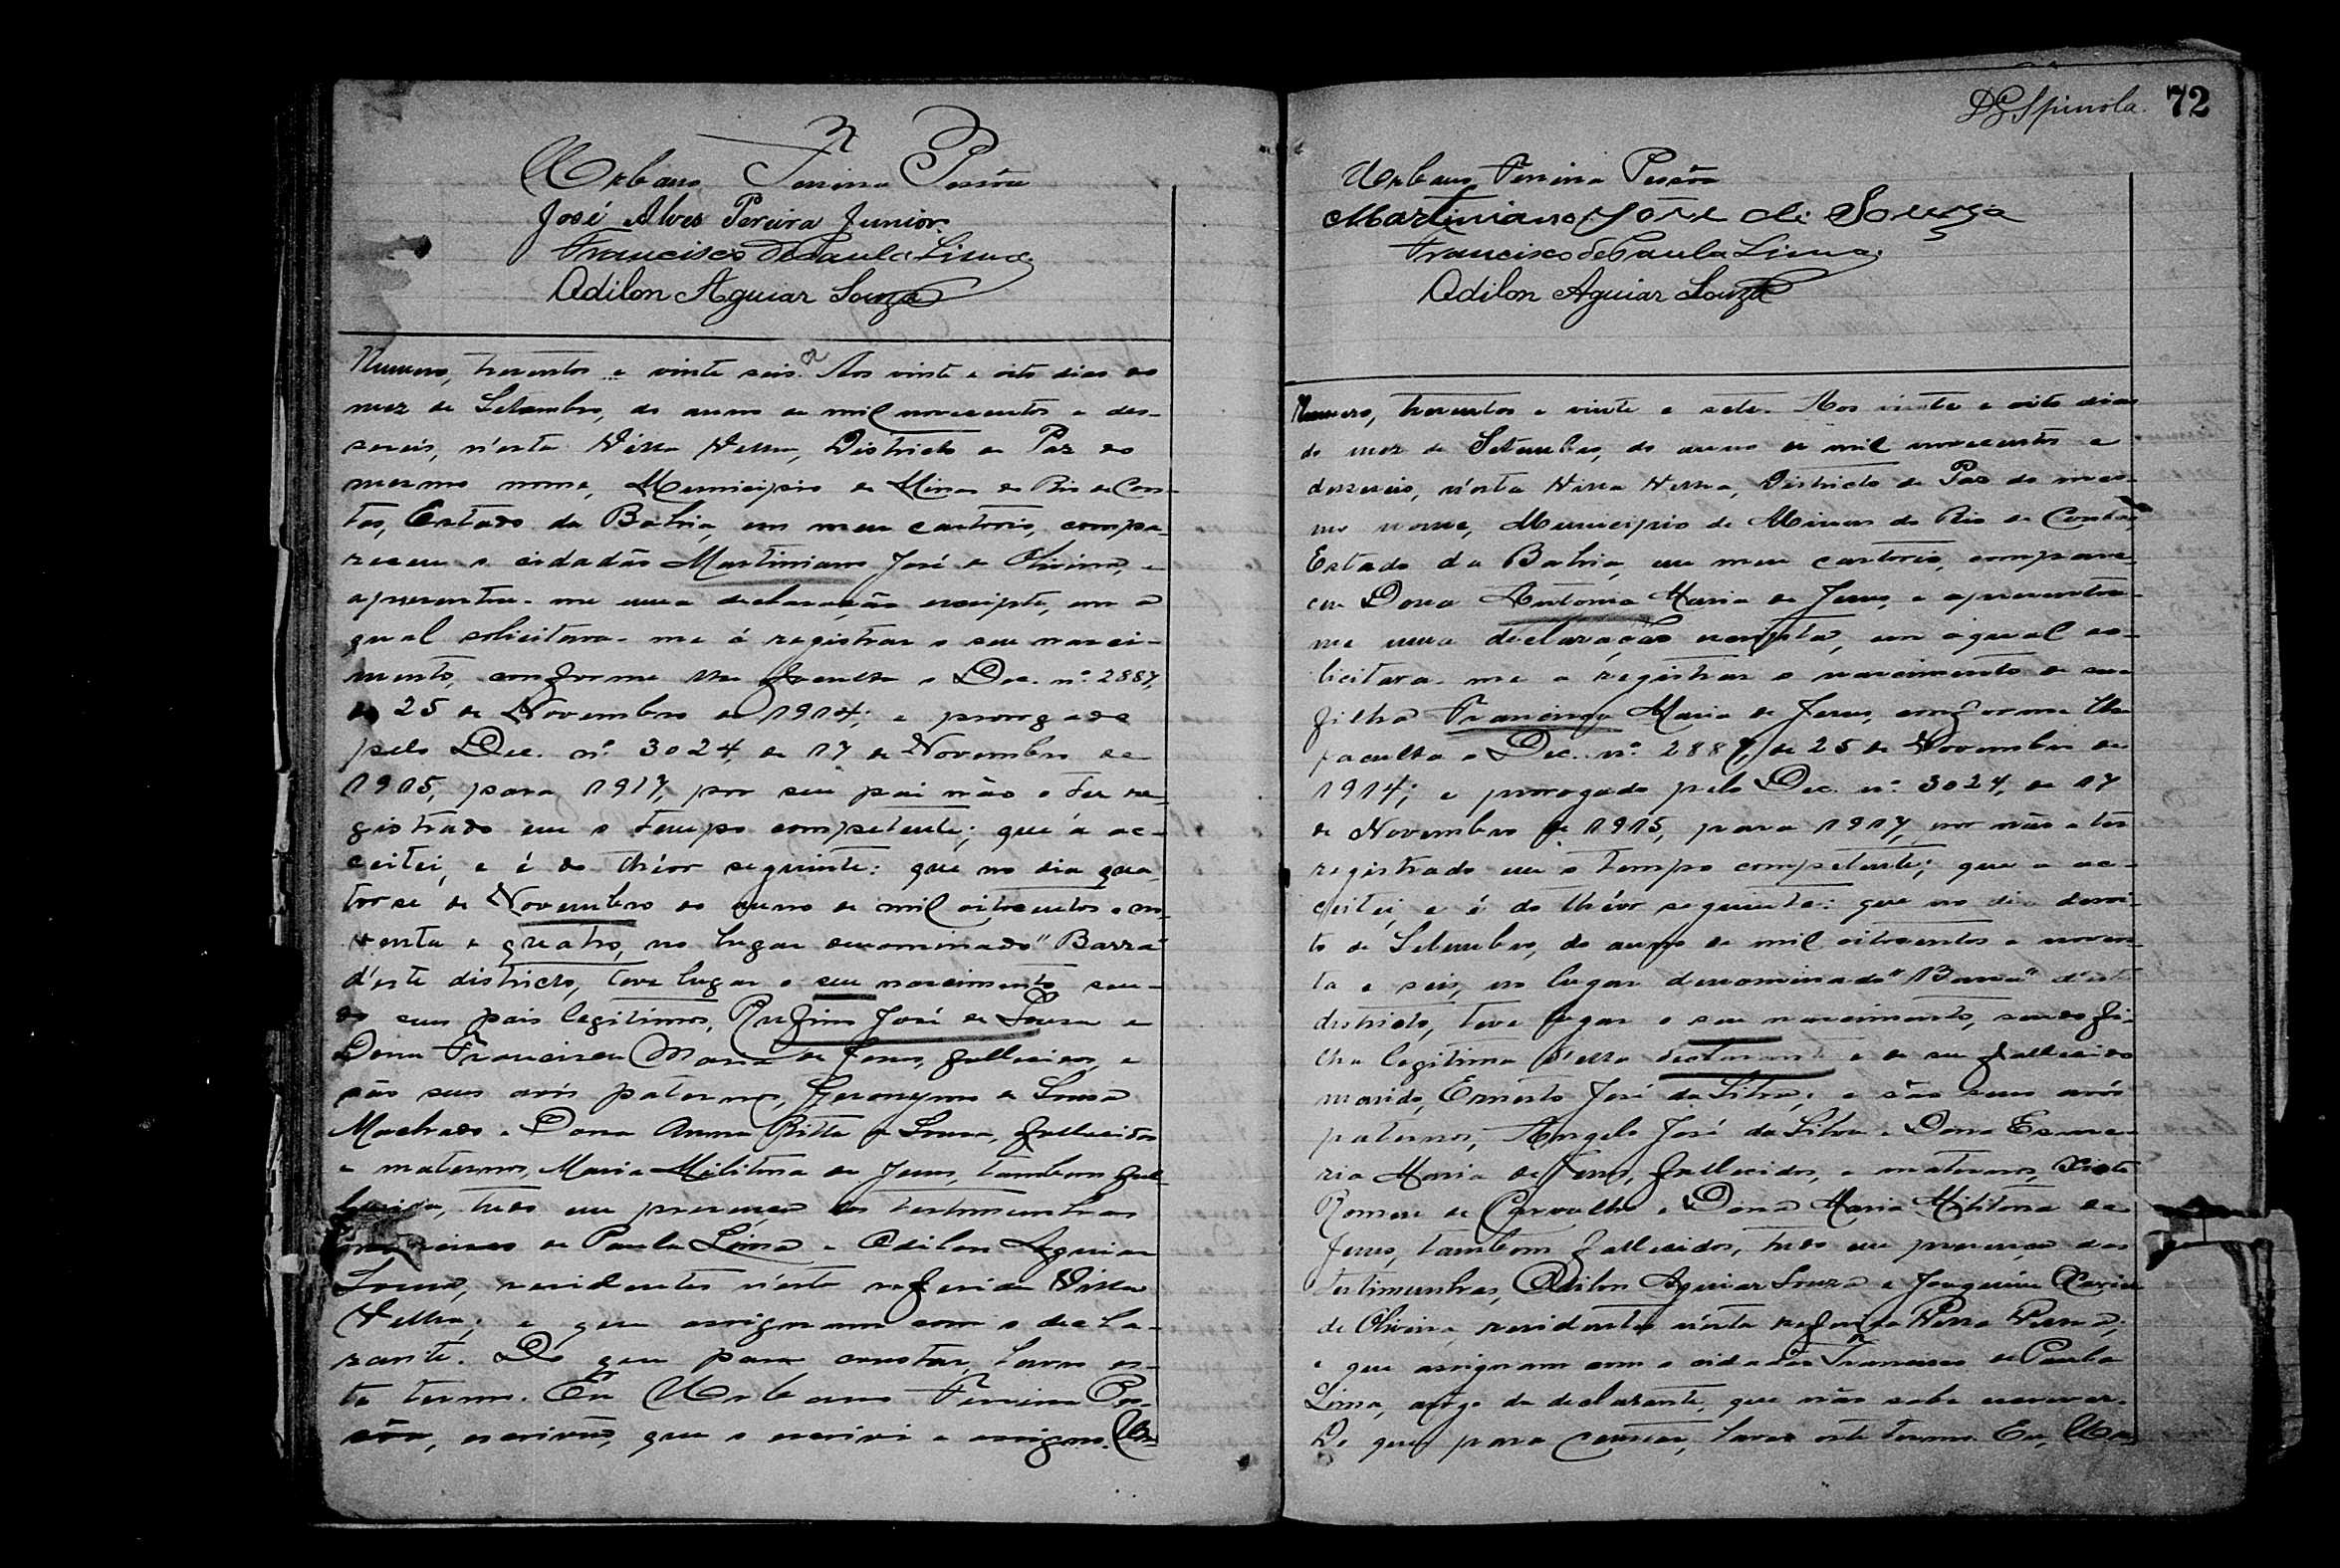 Urbano Ferreira Pessôa
José Alves Pereira Junior
Francisco de Paula Lima
Odilon Aguiar Souza
Numero, trezentos e vinte seis. Aos vinte e oito dias do
mez de Setembro, do anno de mil novecentos e des-
seseis, n'esta Villa Velha, Districto de Paz do
mesmo nome, Municipio de Minas do Rio de Con-
tas, Estado da Bahia, em meu cartorio, compa-
receu o cidadão Martiniano José de Oliveira, e
apresentou-me uma declaração escripta, em a
qual solicitava-me á registrar o seu nasci-
mento, conforme lhe faculta o Dec. nº 2887,
de 25 de Novembro de 1914; e prorogado
pelo Dec. nº 3024, de 17 de Novembro de
1915, para 1917, por seu pai não o ter re-
gistrado em o tempo competente; que a ac-
ceitei, e é do théor seguinte: que no dia qua-
torse de Novembro do anno de mil oitocentos e no-
venta e quatro, no lugar denominado "Barra"
d'este districto, teve lugar o seu nascimento sen-
do seus pais legitimos, Rufino José de Sousa e
Dona Francisca Maria de Jesus, fallecidos, e
são seus avós paternos, Geronymo de Sousa
Machado e Dona Anna Ritta de Sousa, fallecidos
e maternos, Maria Militona de Jesus, tambem fal-
lecida, tudo em presença das testemunhas
Francisco de Paula Lima e Odilon Aguiar
Sousa, residentes n'esta referida Villa
Velha; e que assignam com o decla-
rante. Do que para constar, lavro es-
te termo. Eu Urbano Ferreira Pes-
sôa, escrivão, que o escrivi e assigno. Ur-
DG Spinola 72
Urbano Ferreira Pessôa
Martiniano José de Souza
Francisco de Paula Lima
Odilon Aguiar Souza
Numero, trezentos e vinte e sete. Aos vinte e oito dias
do mez de Setembro, do anno de mil novecentos e
desseseis, n'esta Villa Velha, Districto de Paz do mes-
mo nome, Municipio de Minas do Rio de Contas
Estado da Bahia, em meu cartorio, compare-
ceu Dona Antonia Maria de Jesus, e apresentou-
me uma declaração escripta, em a qual so-
licitava-me a registrar o nascimento de sua
filha Maria de Jesus, conforme lhe
faculta o Dec. nº 2887, de 25 de Novembro de
1914; e prorogado pelo Dec. nº 3024, de 17
de Novembro de 1915, para 1917, por não o ter
registrado em o tempo competente; que a ac-
ceitei, e é do théor seguinte: que no dia desoi-
to de Setembro, do anno de mil oitocentos e noven-
ta e seis, no lugar denominado "Barra" d'este
districto, teve lugar o seu nascimento, sendo fi-
lha legitima d'essa declarante e de seu fallecido
marido, Ernesto José da Silva; e são seus avós
paternos, Angelo José da Silva e Dona
Maria de Jesus, fallecidos, e maternos,
de Carvalho e Dona Maria Militona de
Jesus, tambem fallecidos, tudo em presença das
testimunhas, Odilon Aguiar Souza e Joaquim
de Oliveira residentes n'esta referida Villa Velha,
e que assignam com o cidadão Francisco de Paula
Lima, arôgo da declarante, que não sabe escrever.
Do que, para constar, lavro este termo. Eu, Ur-